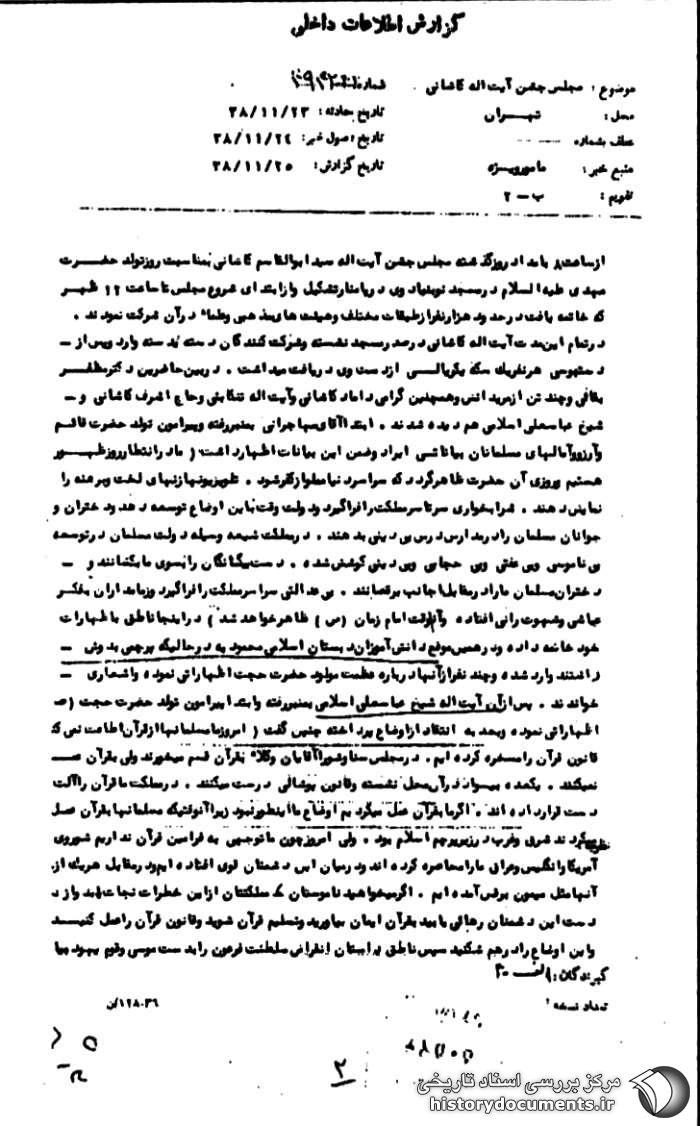 گزارش اطلاعات داخلی
موضوع : مجلس جشن آیت اله کاشانی
شماره
محل : تهــران
تاریخ حادثه : ۳۸/۱۱/۲۳
عطف بشماره
تاریخ وصول خبر : ۳۸/۱۱/۲۴
منبع خبر : مامورویــژه
تاریخ گزارش : ۳۸/۱۱/۲۵
تقویم : ب – ۲
ازساعت ۸ بامداد روزگذشته مجلس جشن آیت اله سید ابوالقاسم کاشانی بمناسبت روزتولد حضــرت
مهدی علیه السلام در مسجد نوبنیاد وی در پامنار تشکیل وازابتدای شروع مجلس تا ساعت ۱۲ ظهــر
که خاتمه یافت درحدود هزارنفر ازطبقات مختلف وهیئت های مذهبی وعلماء در آن شرکت نمودند .
درتمام این مدت آیت اله کاشانی در صدر مسجد نشسته وشرکت کنندگان دسته بدسته وارد وپس از –
دستبوسی هرنفریك سکه یکریالــی ازدست وی دریافت میداشت . دربین حاضرین دکترمظفــر
بقائی وچند تن از مریدانش وهمچنین گرامی داماد کاشانی وآیت اله تنکابنی وحاج اشرف کاشانی و –
شیخ عباسعلی اسلامی هم دیده شدند . ابتدا آقای مهاجرانی بمنبررفته وپیرامون تولد حضرت قائــم
وآرزووآمالهای مسلمانان بیاناتــی ایراد وضمن این بیانات اظهارداشت ( ما درانتظارروزظهــور
هستیم وروزی آن حضرت ظاهرگردد که سراسردنیا مملوازکفرشود . تلویزیونها زنهای لخت وبرهنه را
نمایش دهند . شرابخواری سرتاسرمملکت رافراگیرد ودولت وقت باین اوضاع توسعه دهد ودختران و
جوانان مسلمان رادرمدارس درس بی دینی بدهند . درمملکت شیعه وسیله دولت مسلمان درتوسعه
بی ناموسی وبی عفتی وبی حجابی وبی دینی کوشش شده . دست بیگانگان رابسوی ما بکشانند و –
دختران مسلمان مارادرمقابل اجانب برقصانند . بی عدالتی سراسرمملکت رافراگیرد وزمامداران بفکــر
عیاشی وشهوت رانی افتاده وآنوقت امام زمان (ص) ظاهرخواهد شد ) دراینجا ناطق باظهارات
خود خاتمه داده ودرهمین موقع دانش آموزان دبستان اسلامی محمودیه درحالیکه پرچمی بدوش –
داشتند وارد شده وچند نفرازآنها درباره عظمت مولود حضرت حجت اظهاراتی نموده واشعاری –
خواندند . پس ازآن آیت اله شیخ عباسعلی اسلامی بمنبررفته وابتدا پیرامون تولد حضرت حجت (ص
اظهاراتی نموده وبعد به انتقاد ازاوضاع پرداخته چنین گفت ( امروزما مسلمانها ازقرآن اطاعت نمی کن
قانون قرآن را مسخره کرده ایم . درمجلس سنا وشورا آقایان وکلاء بقرآن قسم میخورند ولی بقرآن عمــل
نمیکنند . یکعده بیسواد درآن محل نشسته وقانون پوشالی درست میکنند . درمملکت ما قرآن راآلت
دست قرارداده اند . اگرما بقرآن عمل میکردیم اوضاع ما اینطورنبود زیرا آنوقتیکه مسلمانها بقرآن عمــل
میکردند شرق وغرب درزیرپرچم اسلام بود . ولی امروزچون ما توجهی به فرامین قرآن نداریم شوروی
آمریکا وانگلیس وعراق مارامحاصره کرده اند ودرمیان این دشمنان قوی افتاده ایم ودرمقابل هریك از
آنها مثل میمون برقص آمده ایم . اگرمیخواهید ناموستان مملکتتان ازاین خطرات نجات یابد واز د
دست این دشمنان رهائی یابید بقرآن ایمان بیاورید وتسلیم قرآن شوید وقانون قرآن راعمل کنیــد
واین اوضاع رادرهم شکنید سپس ناطق به داستان انقراض سلطنت فرعون رابدست موسی وقوم یهود بیا
گیرندگان :
تعداد نسخه :
۲
مرکز بررسی اسناد تاریخی
historydocuments.ir